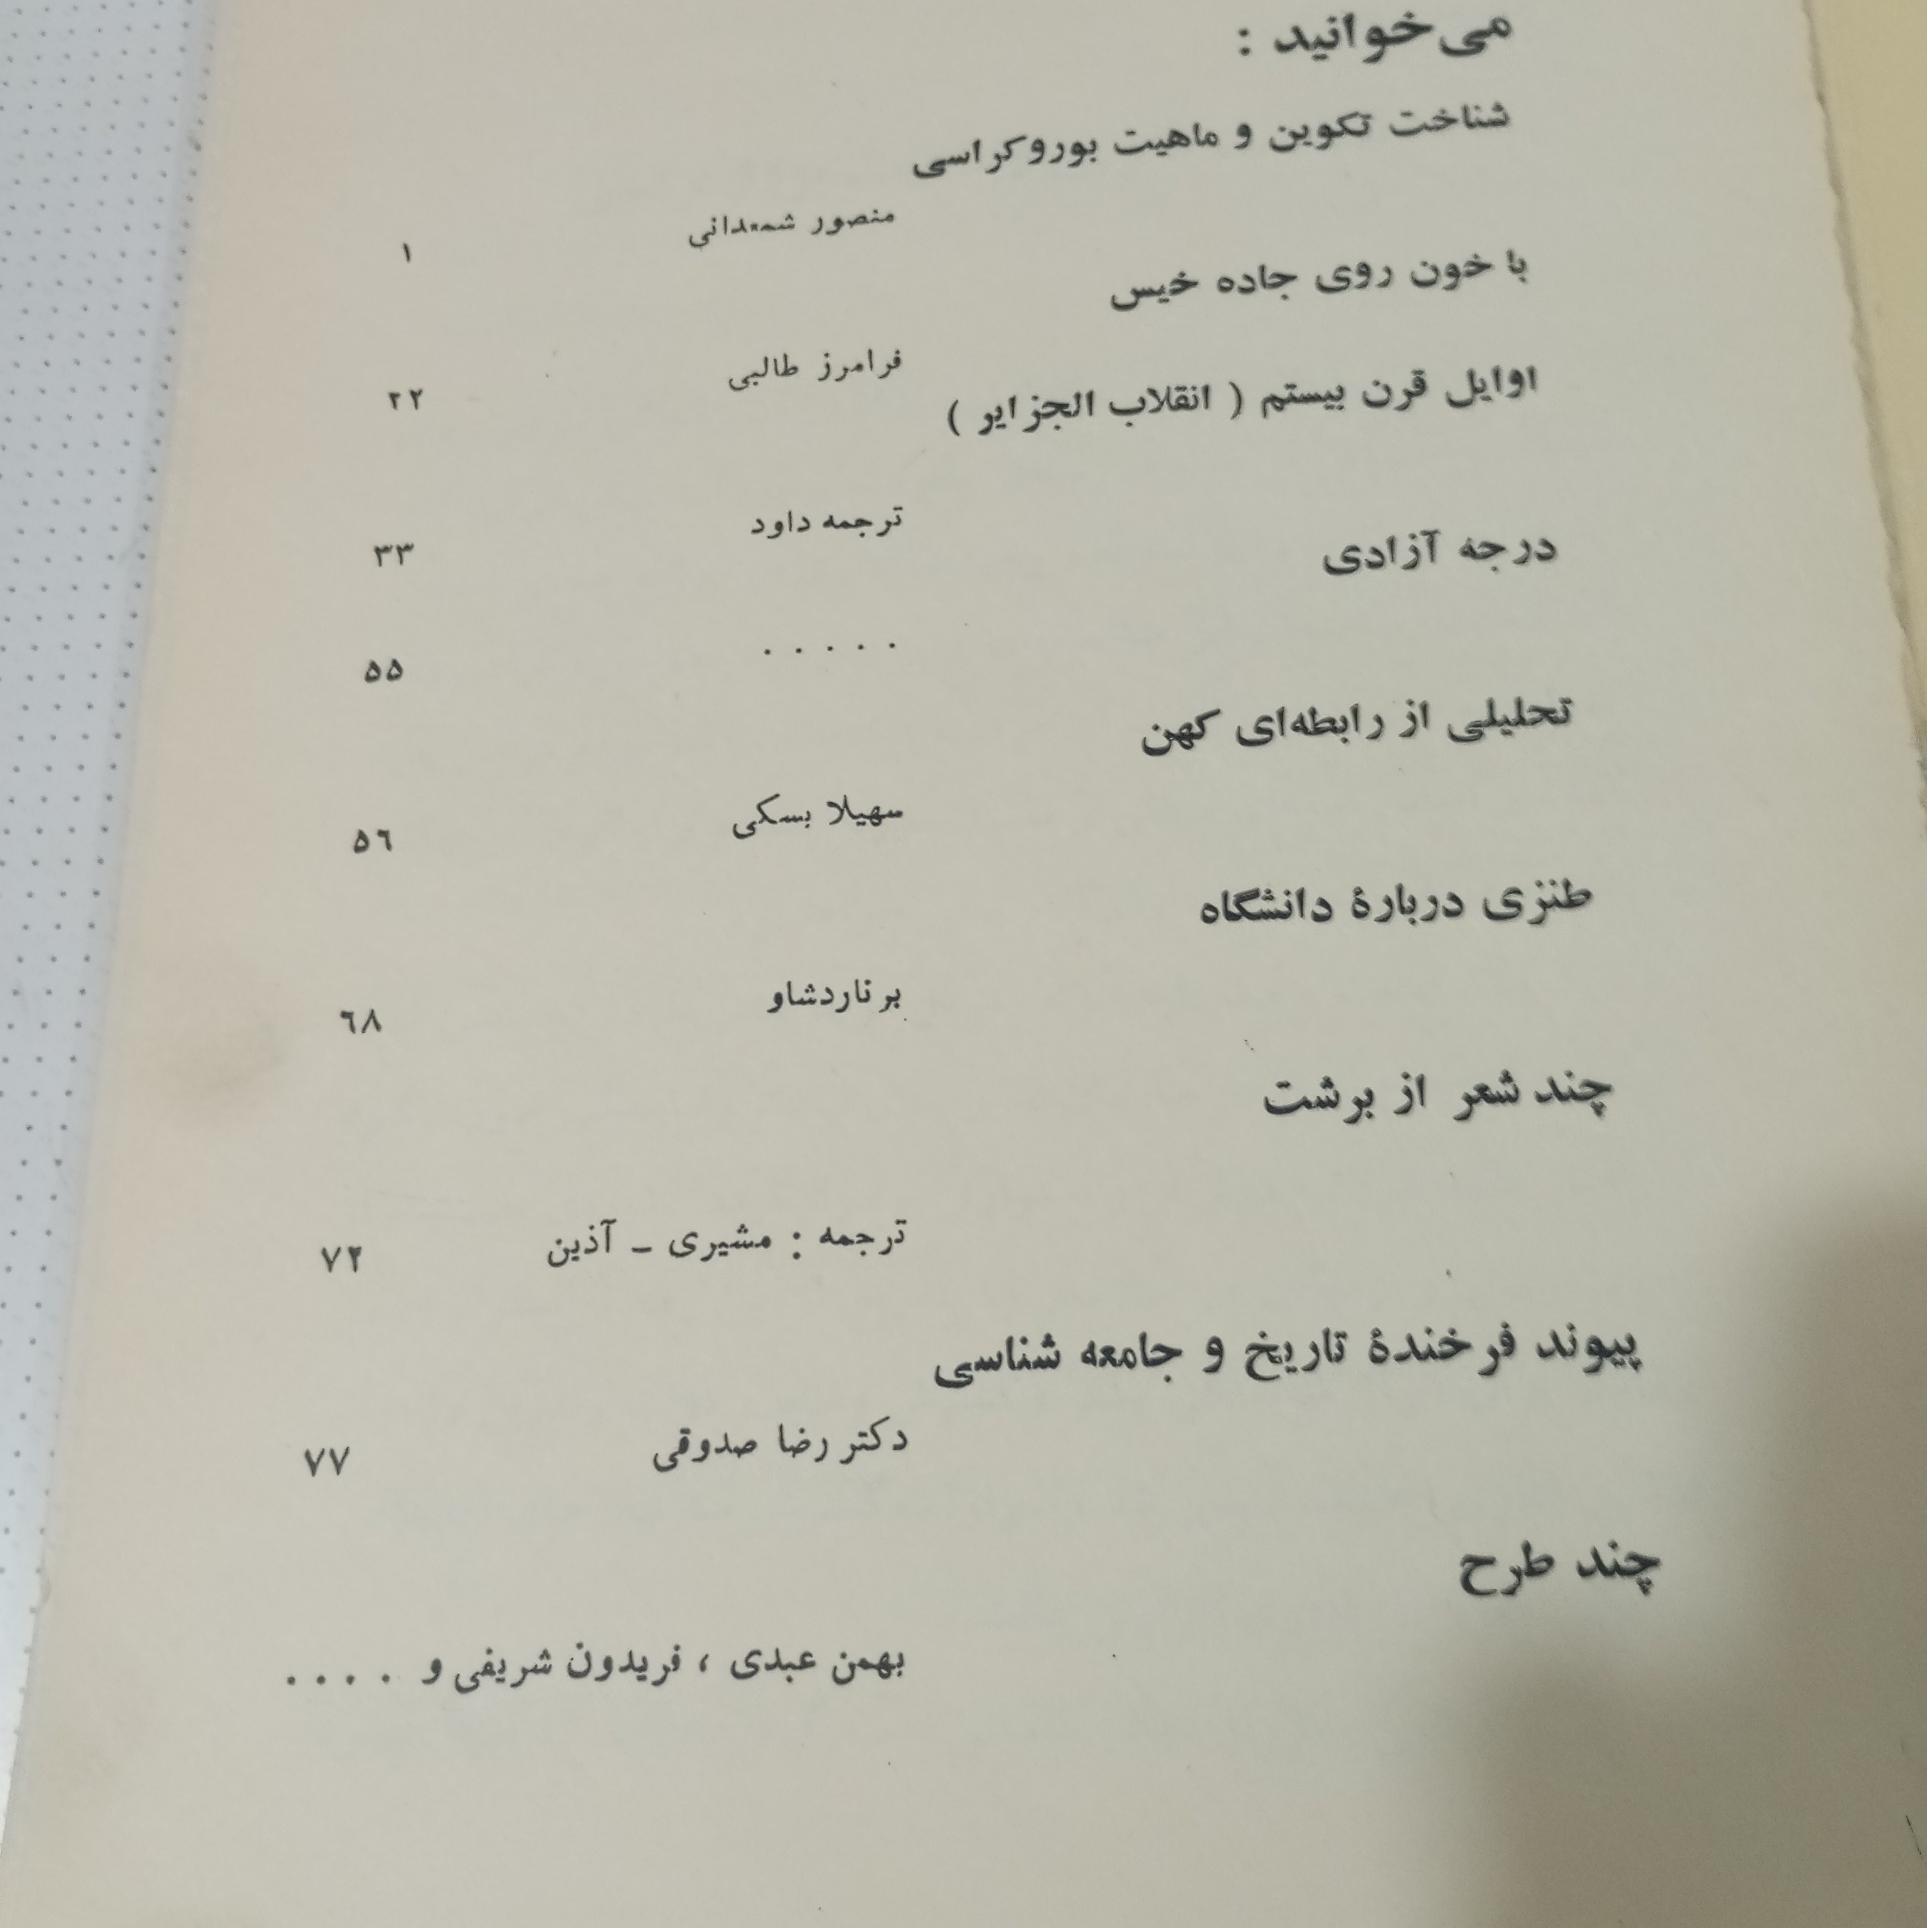 می‌خوانید :
شناخت تکوین و ماهیت بوروکراسی
منصور شمعدانی ۱
با خون روی جاده خیس
فرامرز طالبی ۲۲
اوایل قرن بیستم ( انقلاب الجزایر )
ترجمه داود ۳۳
درجه آزادی
. . . . . ۵۵
تحلیلی از رابطه‌ای کهن
سهیلا بسکی ۵٦
طنزی دربارهٔ دانشگاه
برناردشاو ٦۸
چند شعر از برشت
ترجمه : مشیری ـ آذین ۷۲
پیوند فرخندهٔ تاریخ و جامعه شناسی
دکتر رضا صدوقی ۷۷
چند طرح
بهمن عبدی ، فریدون شریفی و . . . .